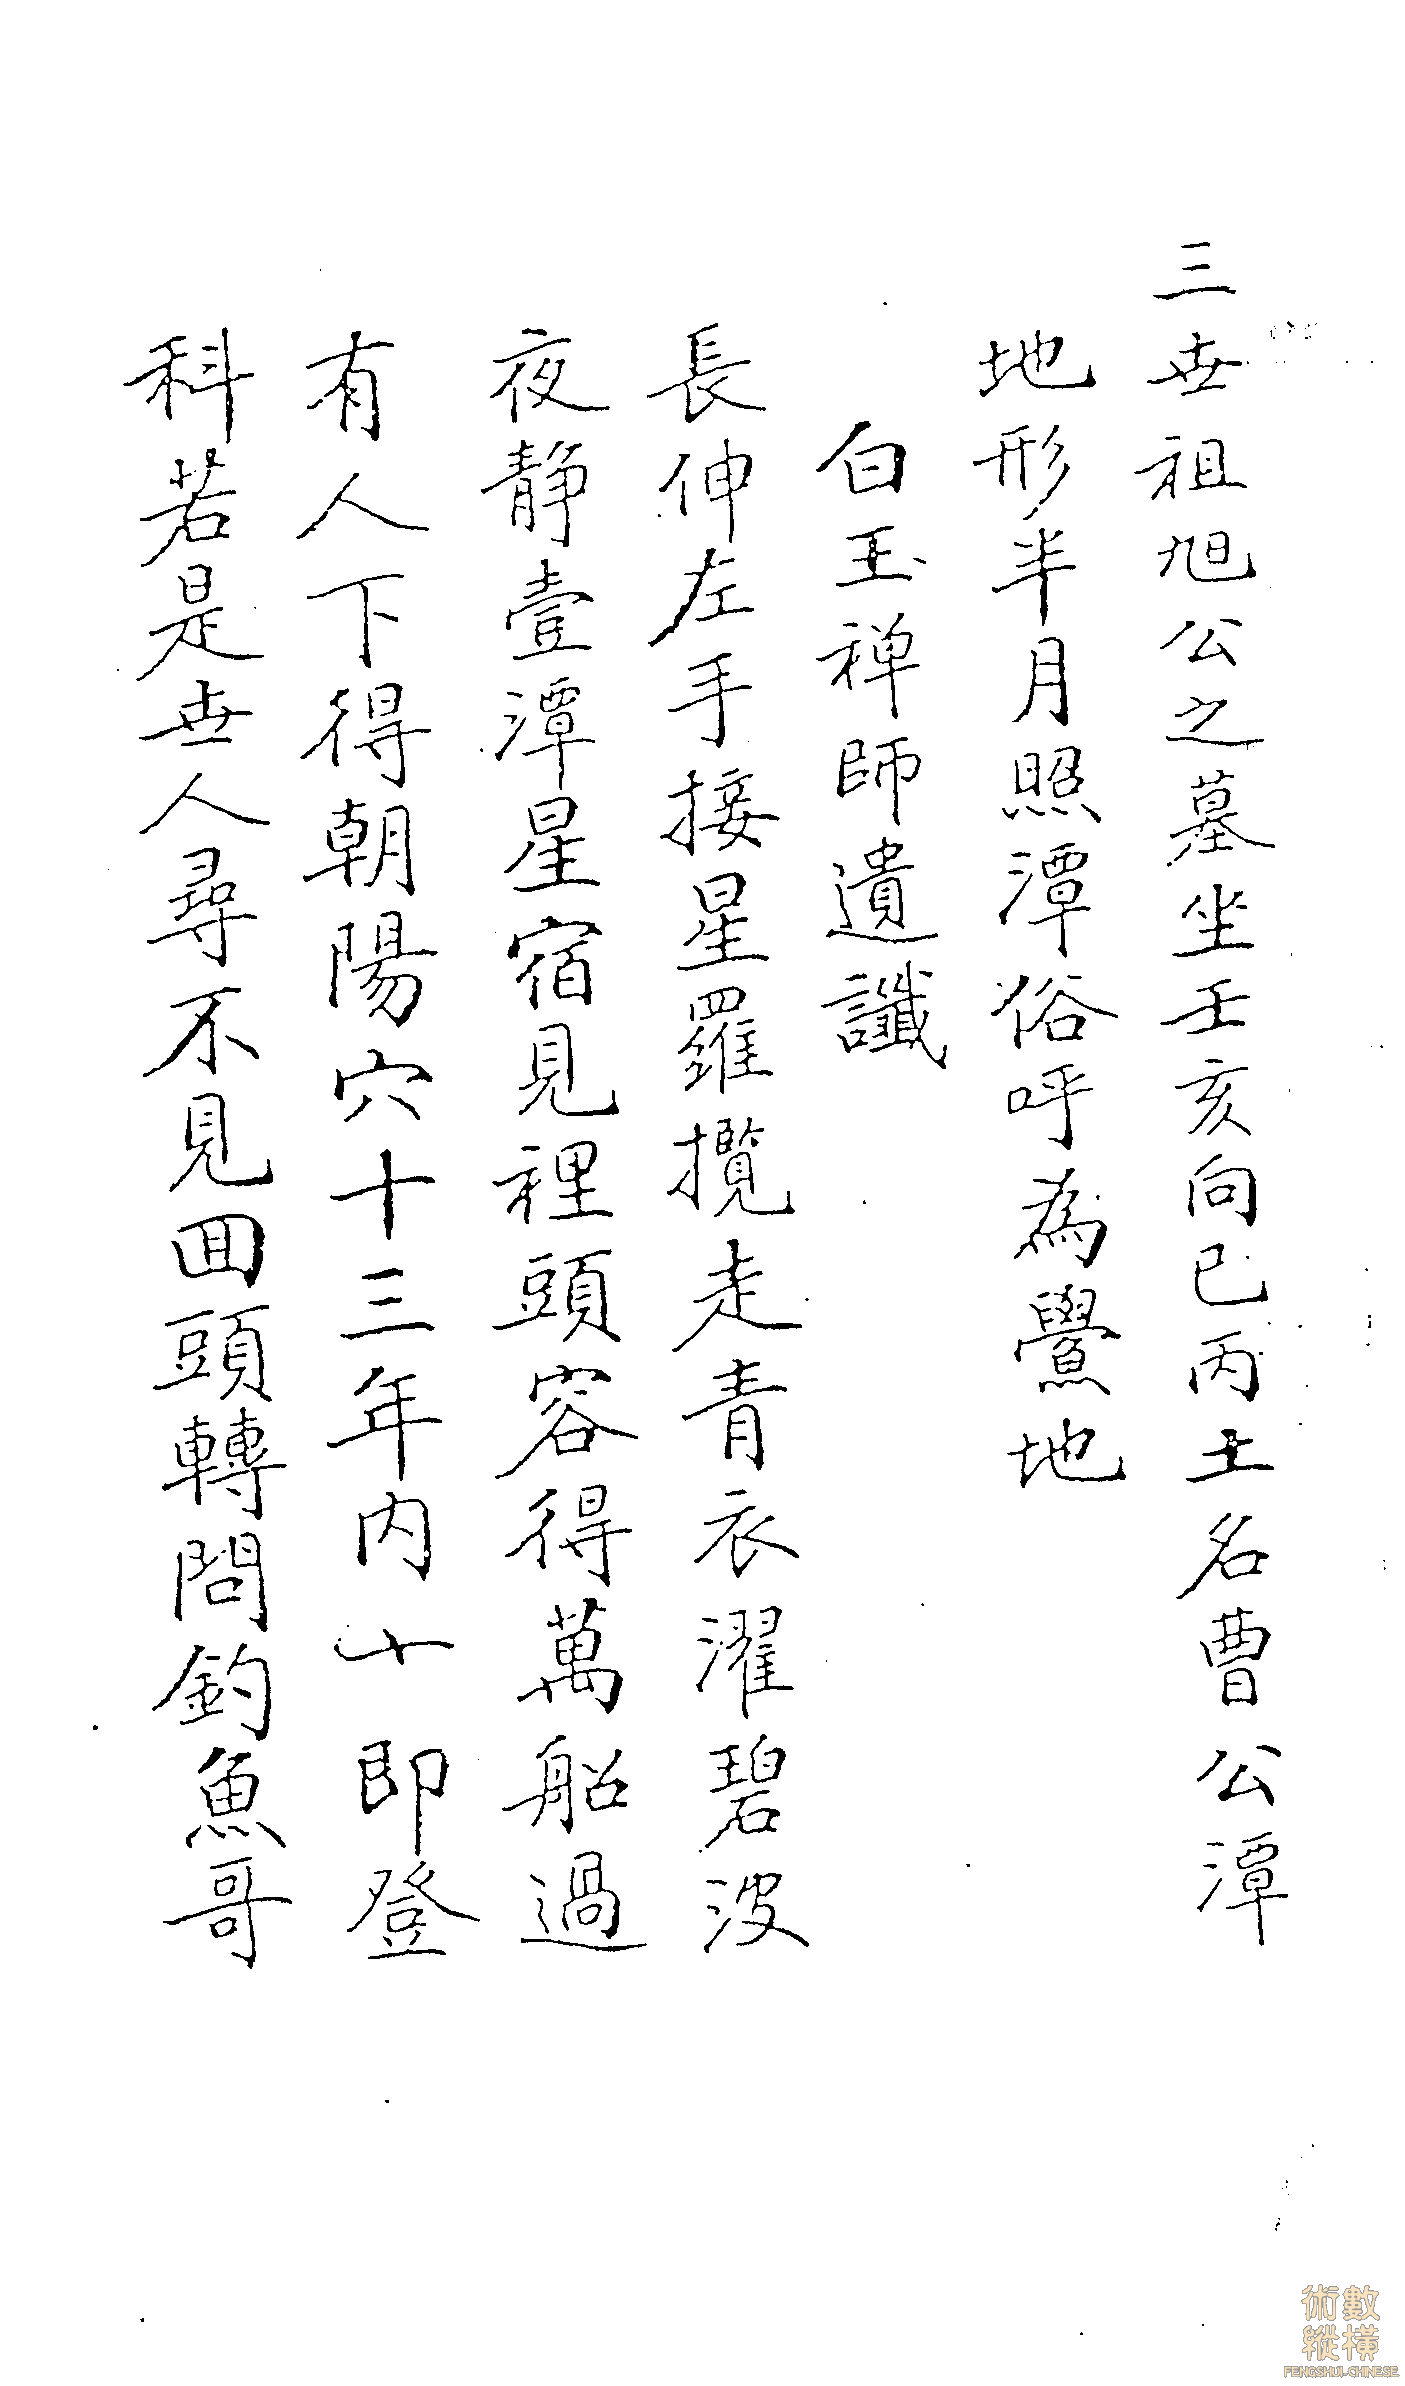 三世祖旭公之墓坐壬亥向巳丙土名曹公潭
地形半月照潭俗呼為鱟地
白玉禅師遺讖
長伸左手接星羅攬走青衣濯碧波
夜静壹潭星宿見裡頭容得萬船過
有人下得朝陽穴十三年内十即登
科若是世人尋不見回頭轉問釣魚哥
術數
縱橫
FENGSHUI-CHINESE